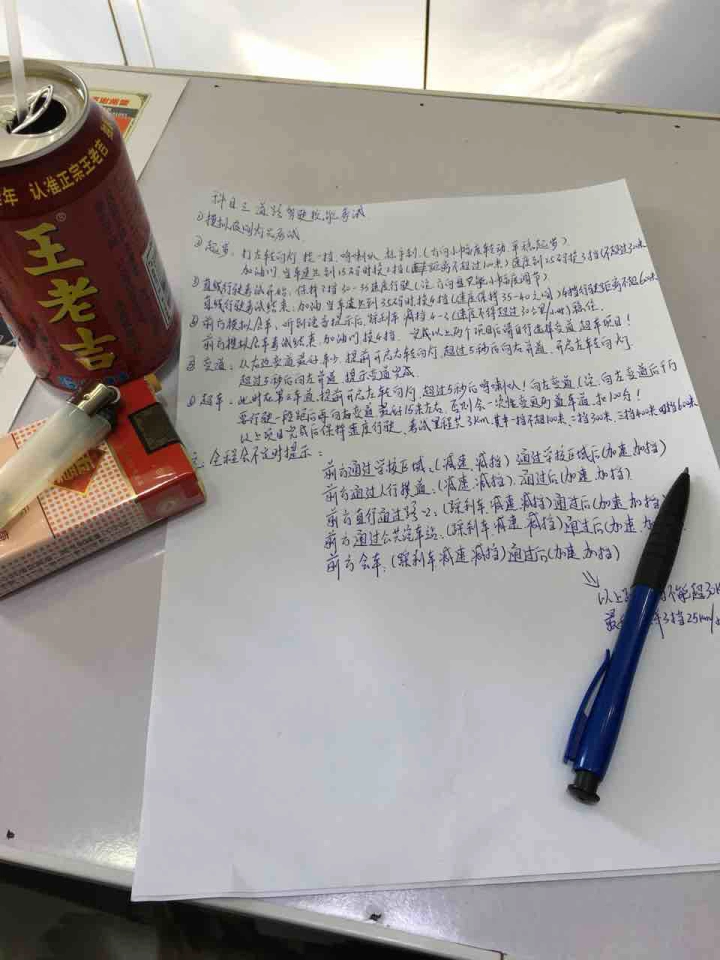 认准正宗王老吉
王老吉
科目三道路驾驶技能考试
①模拟夜间灯光考试
②起步：打左转向灯 挂一挡、鸣喇叭 拉手刹（方向小幅度转动、平稳起步）
加油门 当车速达到15码时换2挡（距离不超过100米）速度到25码换3挡（不超过30米
直线行驶考试开始：保持3挡30-35速度行驶（注：方向盘只能小幅度调节）
直线行驶考试结束：加油、当车速达到35码时换4挡（速度保持35-40之间）4挡行驶距离不超60米
④前方模拟会车、听到语音提示后、踩刹车 减挡4-3（速度不得超过30公里/小时）稳住、
前方模拟会车考试结束、加油门 换4挡、完成以上两个项目后请自行选择变道超车项目！
变道：从右边变道最好 提前开启右转向灯、超过5秒后向右并道、开启左车转向灯
超过5秒后向左并道、提示变道完成
超车：此时在第二车道、提前开启左车转向灯、超过5秒后鸣喇叭！向左变道（注、向左变道后千万
要行驶一段距离再向右变道 最好15米左右、否则会一次性变道两条车道、扣100分！
以上项目完成后保持速度行驶、考试里程共3km、其中一挡不超100米、二挡300米、三挡400米 四挡60米
全程会不定时提示：
前方通过学校区域、（减速、减挡）通过学校区域后（加速 加挡）
前方通过人行横道、（减速、减挡）、通过后（加速、加挡）
前方直行通过路口、（踩刹车、减速、减挡）通过后（加速、加挡
前方通过公共汽车站、（踩刹车、减速、减挡）通过后（加速、加
前方会车、（踩刹车、减速、减挡）通过后（加速、加挡）
以上 不能超30
最 3挡25km/